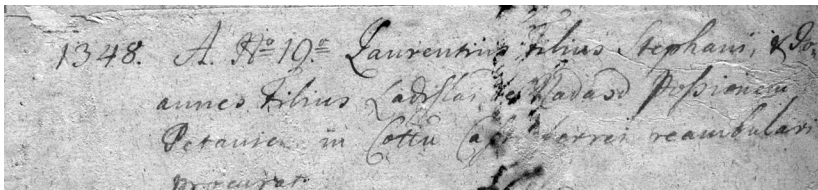 1348. A. No 19o Laurentius Filius Stephani, & Jo-
annes Filius Ladislai de Nadasd Possionem
Petanien in Cottu Castri ferrei reambulari
procurat